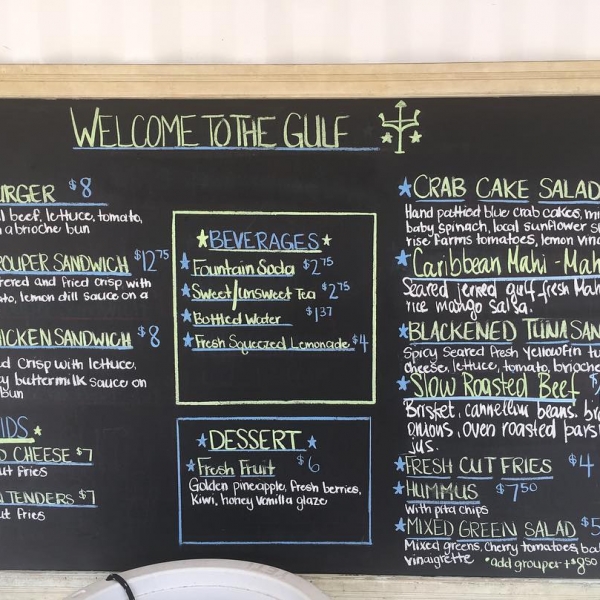 WELCOME TO THE GULF
URGER $8
beef, lettuce, tomato,
a brioche bun
ROUPER SANDWICH $12.75
tered and fried crisp with
to, lemon dill sauce on a
HICKEN SANDWICH $8
ed crisp with lettuce,
y buttermilk sauce on
bun
IDS
D CHEESE $7
ut fries
TENDERS $7
ut fries
BEVERAGES
Fountain Soda $2.75
Sweet/Unsweet Tea $2.75
Bottled Water $1.37
Fresh Squeezed Lemonade $4
DESSERT
Fresh Fruit $6
Golden pineapple, fresh berries,
Kiwi, honey vanilla glaze
CRAB CAKE SALAD
Hand pattied blue crab cakes, mi
baby spinach, local sunflower s
rise farms tomatoes, lemon vina
Caribbean Mahi-Mah
Seared jerked gulf fresh Mah
rice mango salsa.
BLACKENED TUNA SAN
Spicy seared fresh yellowfin tu
cheese, lettuce, tomato, brioche
Slow Roasted Beef $
Brisket, cannellini beans, br
onions, oven roasted pars
jus.
FRESH CUT FRIES $4
HUMMUS $7.50
with pita chips
MIXED GREEN SALAD $5
Mixed greens, cherry tomatoes, ba
vinaigrette *add grouper +$8.50